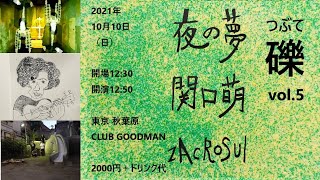 2021年
10月10日
（日）
開場12:30
開演12:50
東京 秋葉原
CLUB GOODMAN
2000円＋ドリンク代
夜の夢
関口萌
zACROSUI
つぶて
礫
vol.5